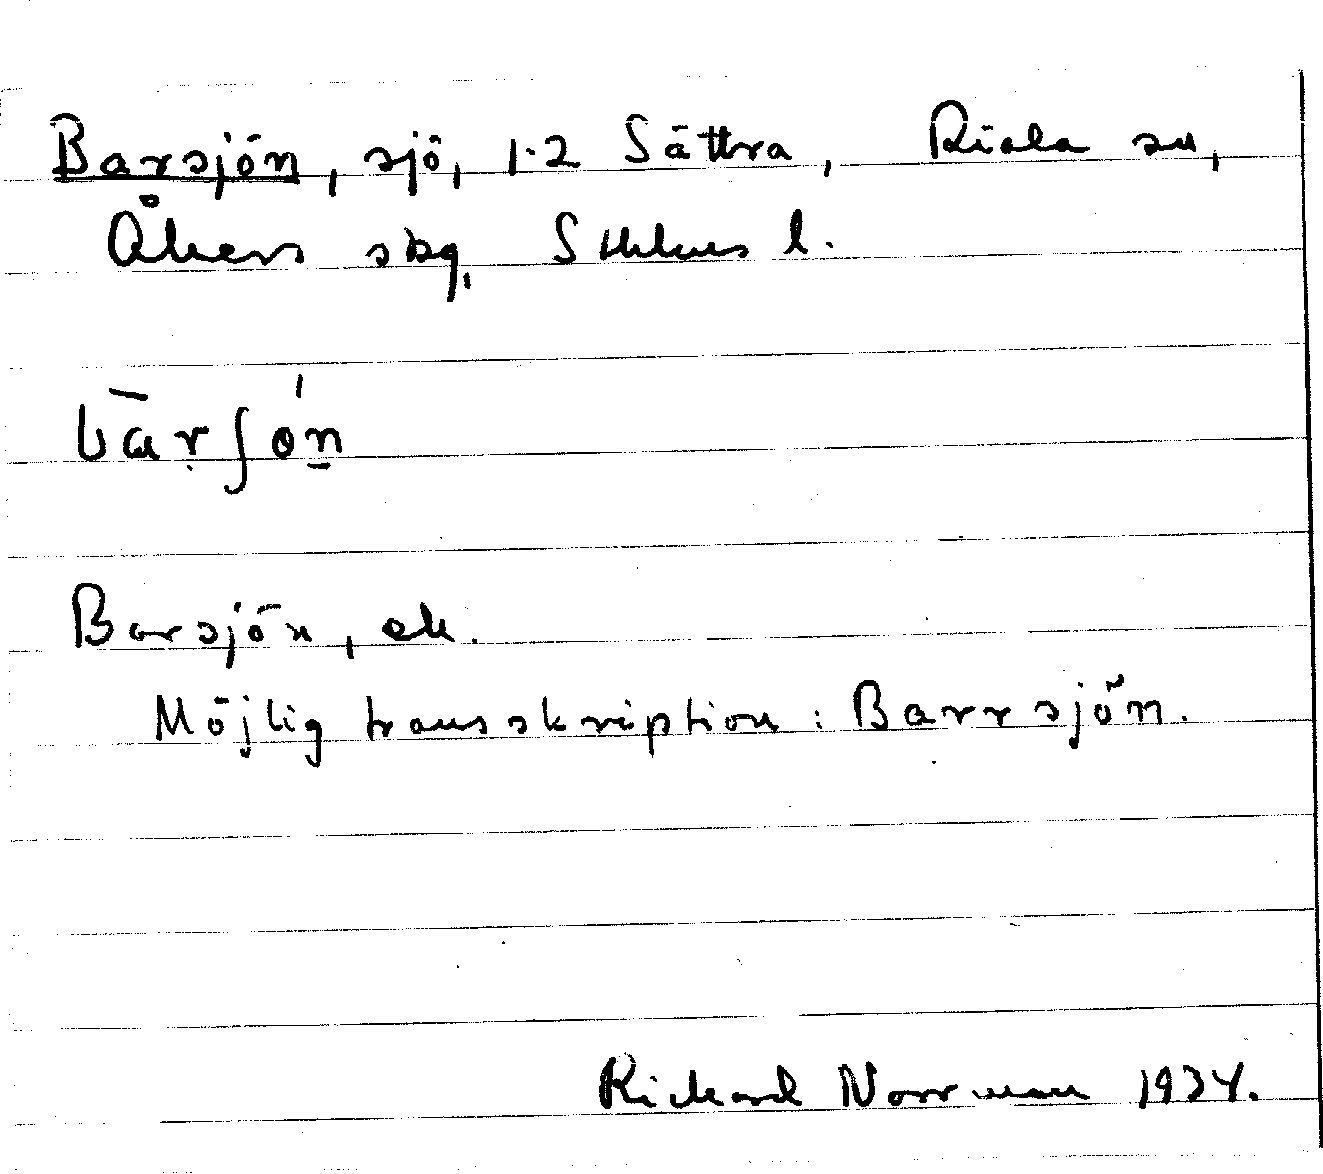 Barsjön, sjö, 1.2 Sättra, Riala sn,
Åkers skg, Sthlms l.
Barsjön, ek.
Möjlig transskription: Barrsjön.
Rickard Norrman 1934.